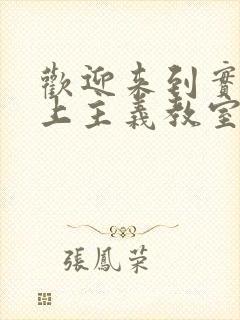 歡迎來到實
上主義教室
張鳳荣